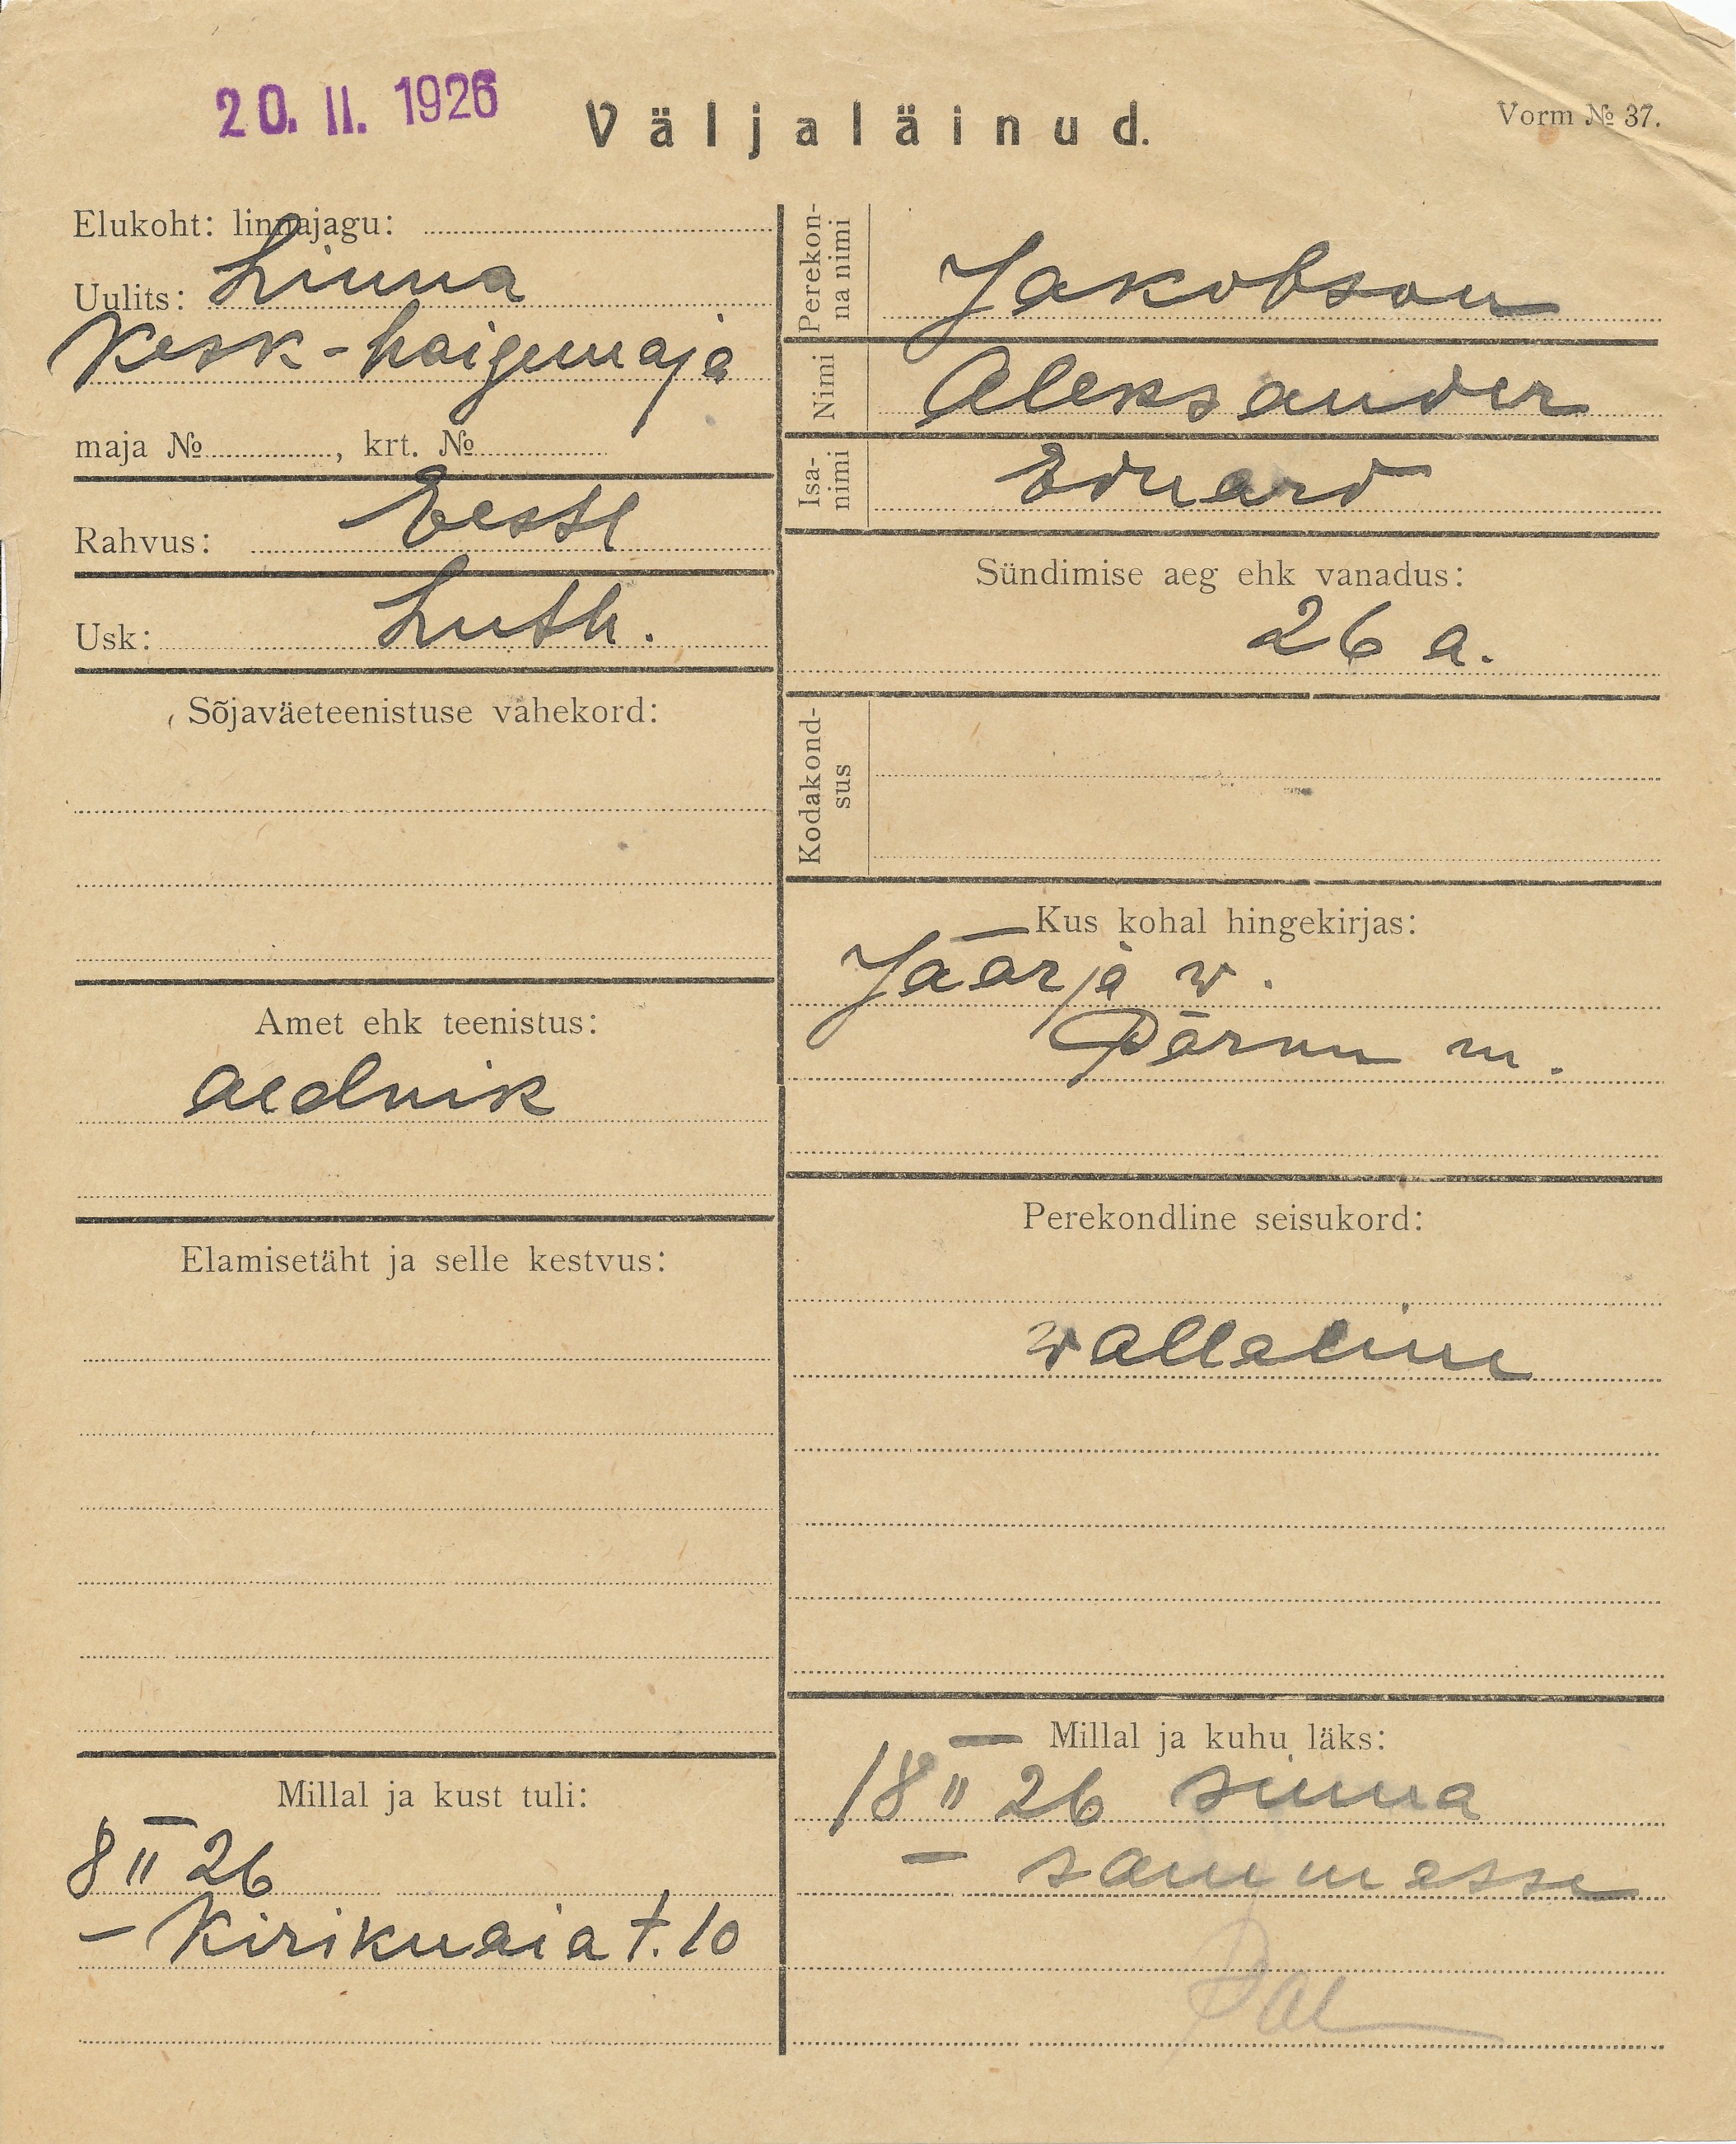 20. II. 1926
Väljaläinud.
Vorm № 37.
Elukoht: linnajagu:
Uulits: Linna
Kesk-haigemaja
maja №, krt. №
Rahvus: Eesti
Usk: Luth.
Sõjaväeteenistuse vahekord:
Amet ehk teenistus:
aednik
Elamisetäht ja selle kestvus:
Millal ja kust tuli:
8 II 26
- Kirikuaia t. 10
Perekon-
na nimi
Jakobson
Nimi
Aleksander
Isa-
nimi
Eduard
Sündimise aeg ehk vanadus:
26 a.
Kodakond-
sus
Kus kohal hingekirjas:
Jäärja w.
Pärnu m.
Perekondline seisukord:
wallaline
Millal ja kuhu läks:
18 II 26 sinna
- sammasse